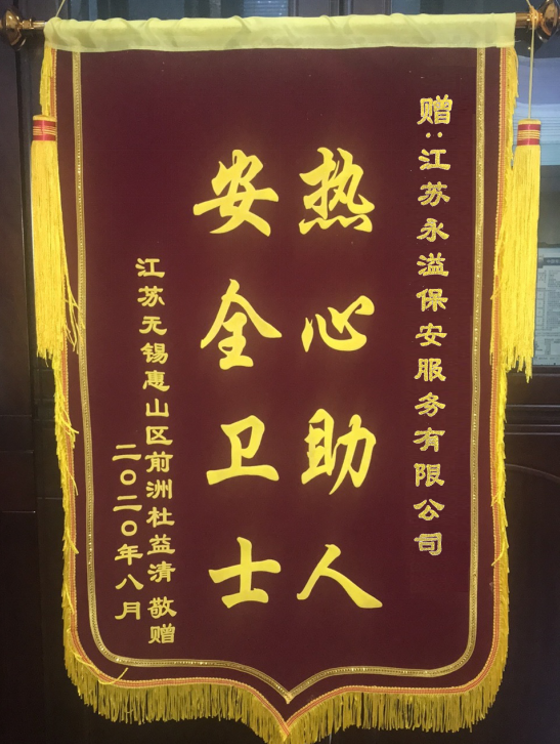 赠:江苏永溢保安服务有限公司
热心助人
安全卫士
江苏无锡惠山区前洲杜益清 敬赠
二〇二〇年八月